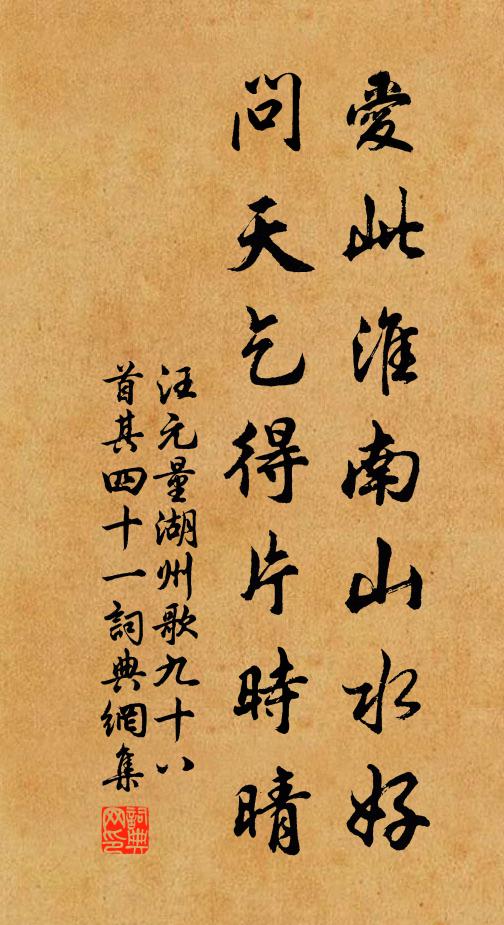 愛此淮南山水好
問天乞得片時晴
汪元量湖州歌九十八
首其四十一詞典網集
詞典
网印